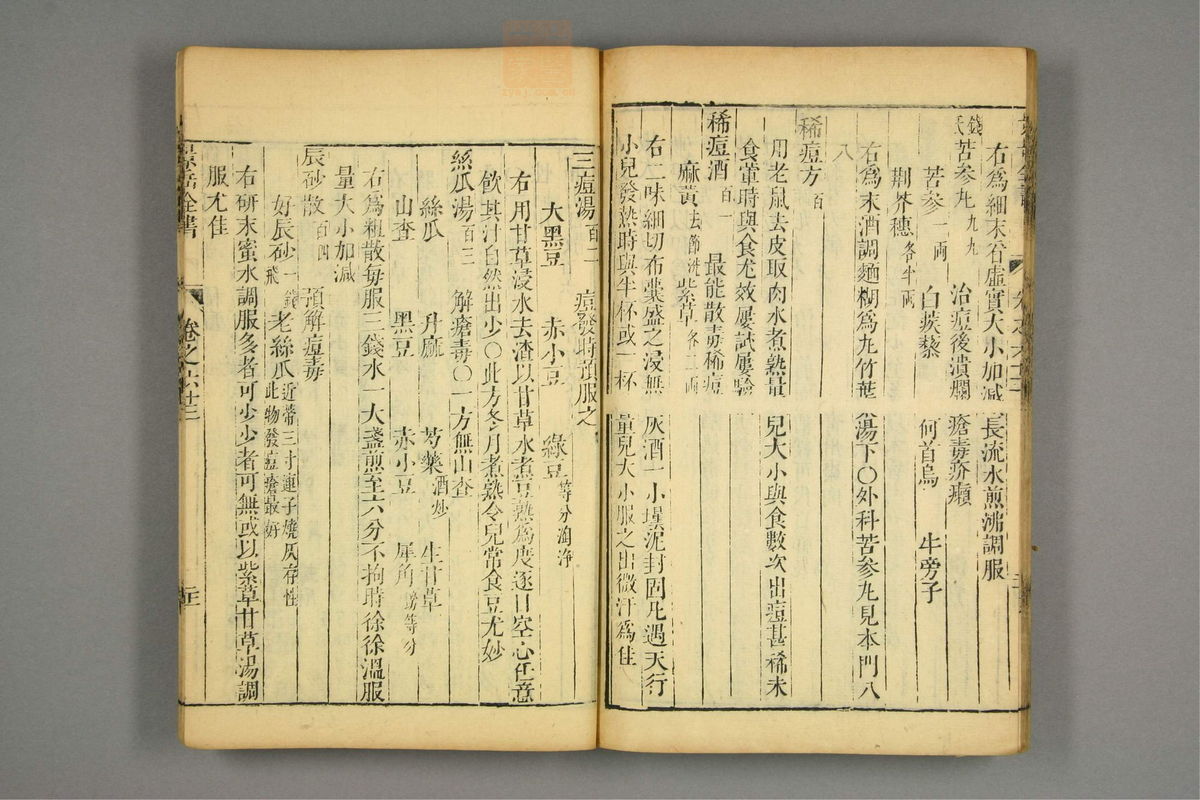 右爲細末看虛實大小加減長流水煎沸調服
錢氏苦參丸 九九 治痘後潰爛瘡毒疥癩
苦參一兩 白蒺藜 何首烏 牛旁子
荆芥穗各半兩
右爲末酒調麵糊爲丸竹葉湯下○外科苦參丸見本門八
八
稀痘方 百
用老鼠去皮取肉水煮熟量兒大小與食數次出痘甚稀未
食葷時與食尤效屢試屢驗
稀痘酒 百一 最能散毒稀痘
麻黃去節洗 紫草各二兩
右二味細切布囊盛之浸無灰酒一小壜泥封固凡遇天行
小兒發熱時與半杯或一杯量兒大小服之出微汗爲佳
三痘湯 百二 痘發時預服之
大黑豆 赤小豆 綠豆等分淘淨
右用甘草浸水去渣以甘草水煮豆熟爲度逐日空心任意
飲其汁自然出少○此方冬月煮熟令兒常食豆尤妙
絲瓜湯 百三 解瘡毒○一方無山查
絲瓜 升麻 芍藥酒炒 生甘草
山查 黑豆 赤小豆 犀角鎊等分
右爲粗散每服三錢水一大盞煎至六分不拘時徐徐溫服
量大小加減
辰砂散 百四 預解痘毒
好辰砂一錢飛 老絲瓜近蒂三寸連子燒灰存性此物發痘瘡最妙
右研末蜜水調服多者可少少者可無或以紫草甘草湯調
服尤佳
景岳全書 卷之六十三